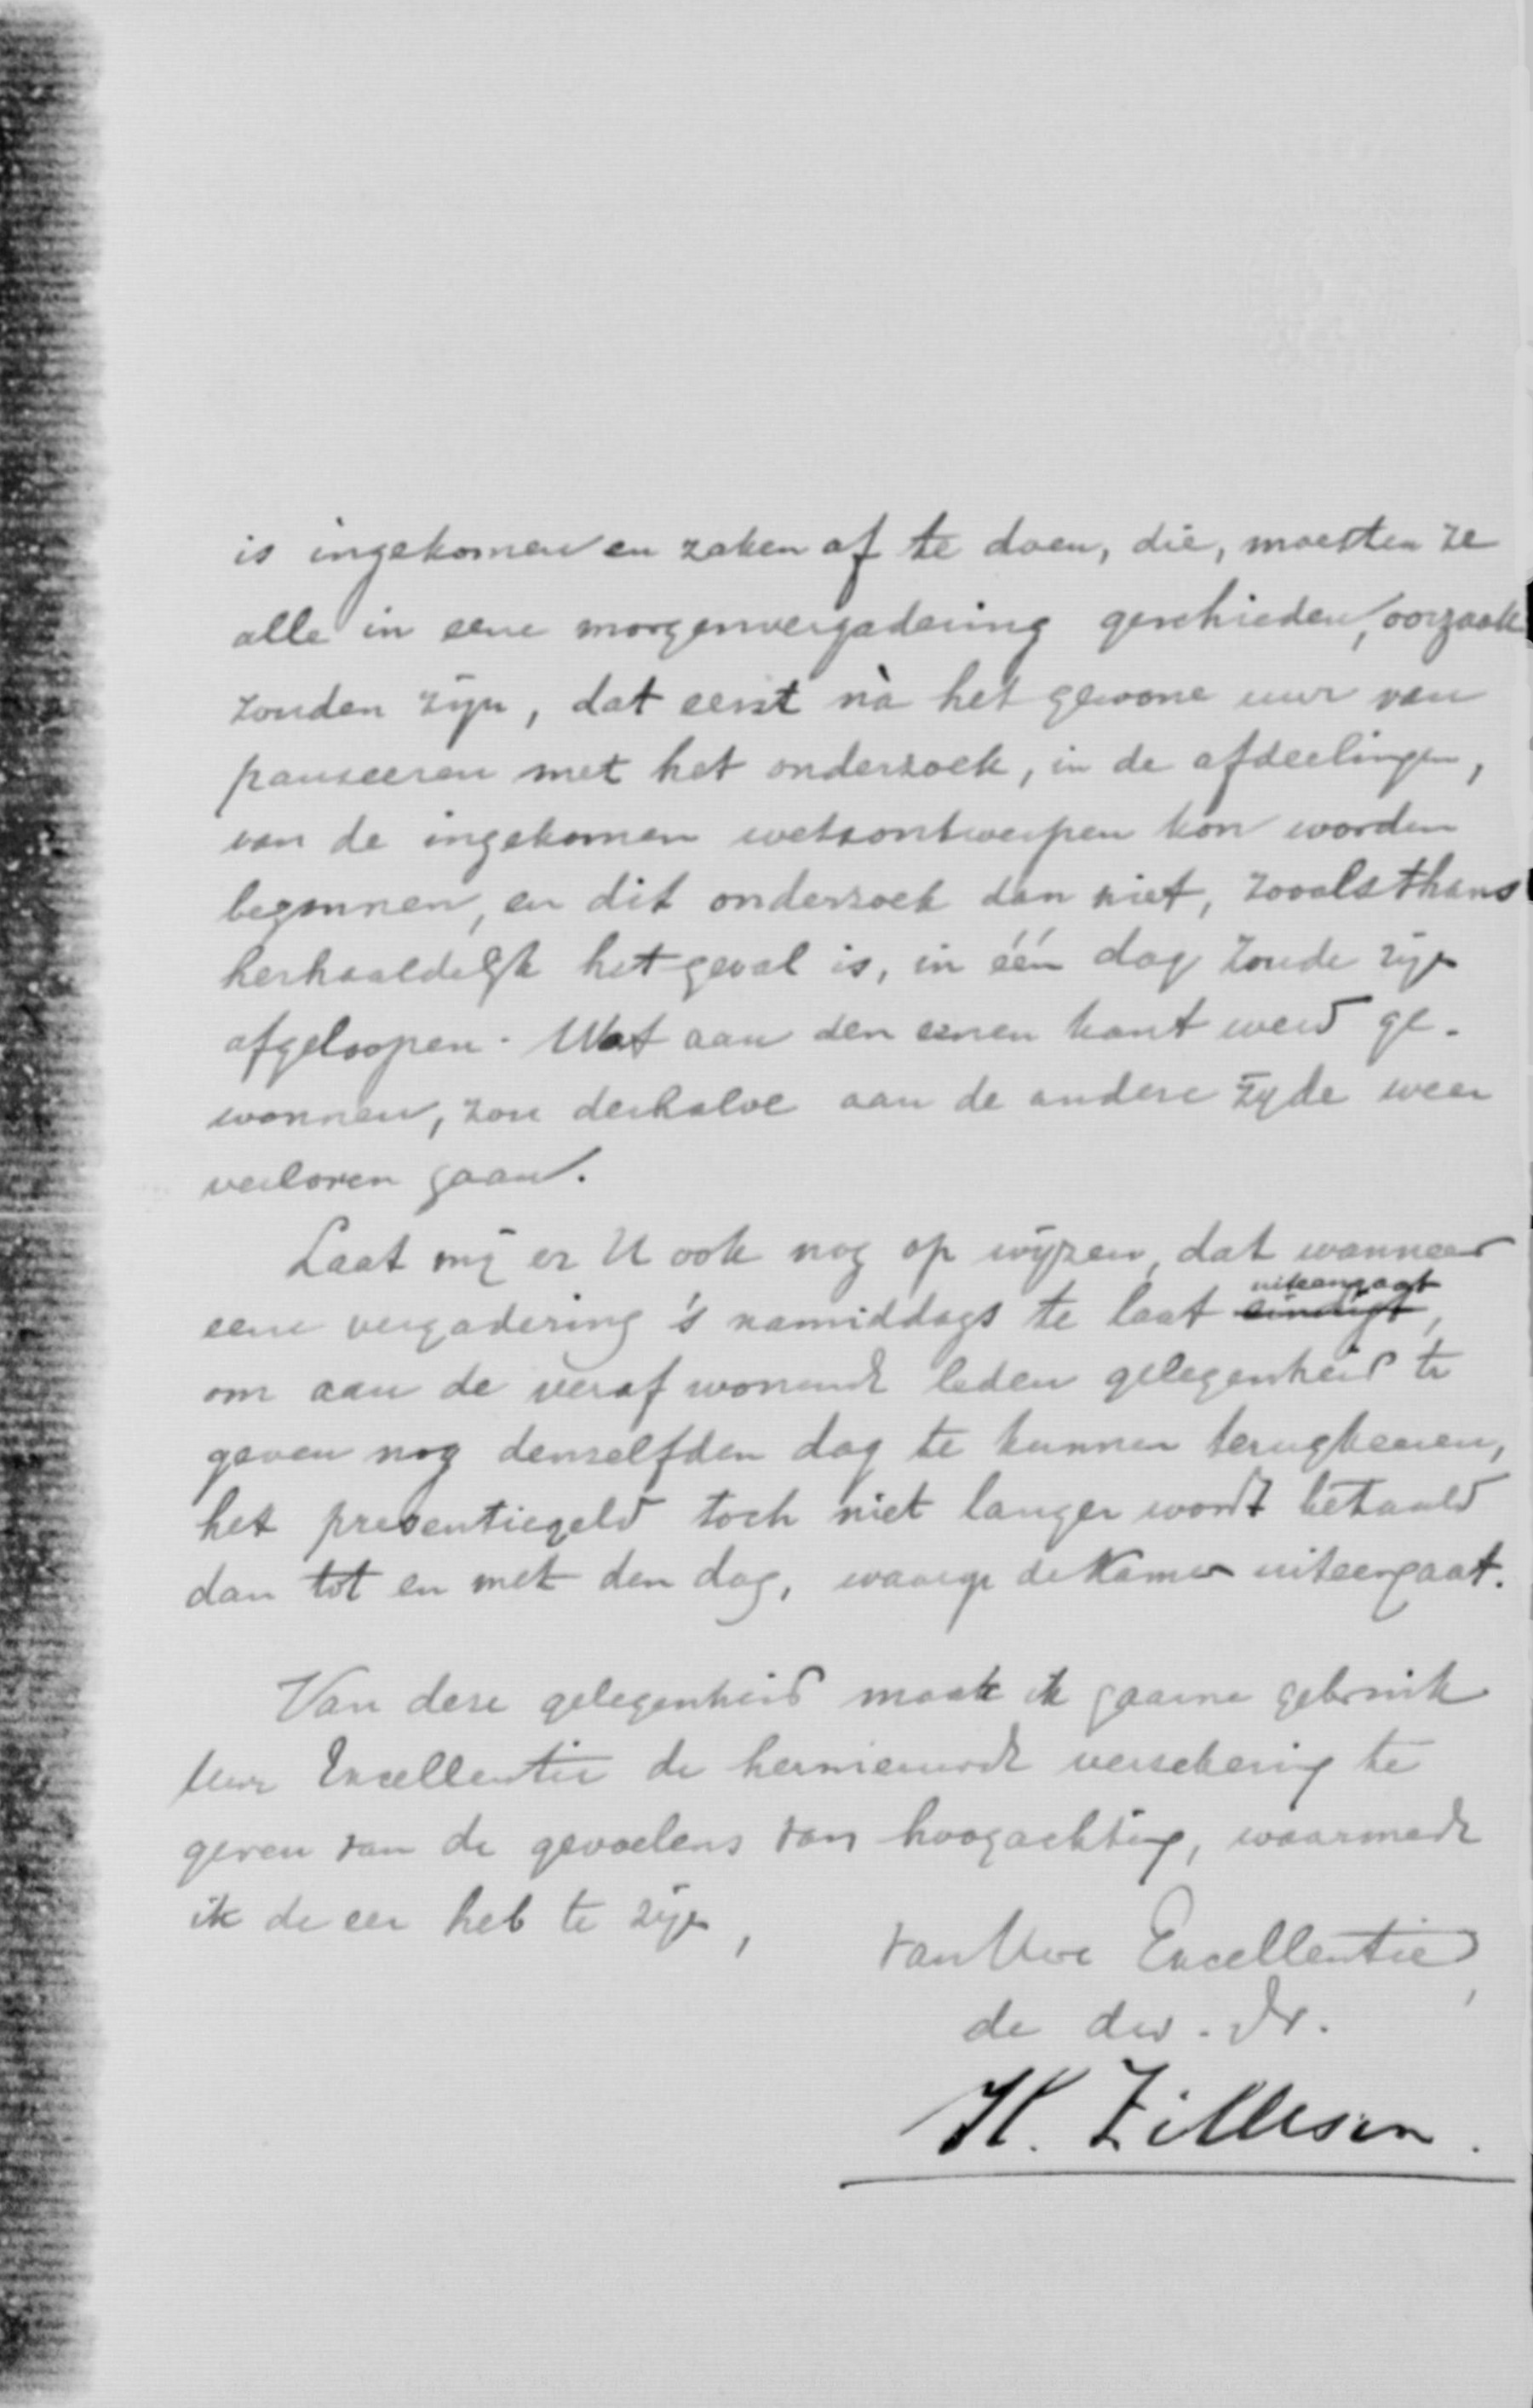 is ingekomen en zaken af te doen, die, moesten ze
alle in eene morgenvergadering geschieden, oorzaak
zouden zijn, dat eerst nà het gewone uur van
pauseeren met het onderzoek, in de afdeelingen,
van de ingekomen wetsontwerpen kon worden
begonnen, en dit onderzoek dan niet, zooals thans
herhaaldelijk het geval is, in één dag zoude zijn
afgeloopen. Wat aan den eenen kant werd ge-
wonnen, zou derhalve aan de andere zijde weer
verloren gaan.
Laat mij er U ook nog op wijzen, dat wanneer
uiteengaat
eene vergadering 's namiddags te laat eindigt,
om aan de veraf wonende leden gelegenheid te
geven nog denzelfden dag te kunnen terugkeeren,
het presentiegeld toch niet langer wordt betaald
dan tot en met den dag, waarop de Kamer uiteengaat.
Van deze gelegenheid maak ik gaarne gebruik
Uwe Excellentie de hernieuwde verzekering te
geven van de gevoelens van hoogachting, waarmede
ik de eer heb te zijn,
van Uwe Excellentie,
de dw. dr.
H. Zillesen.